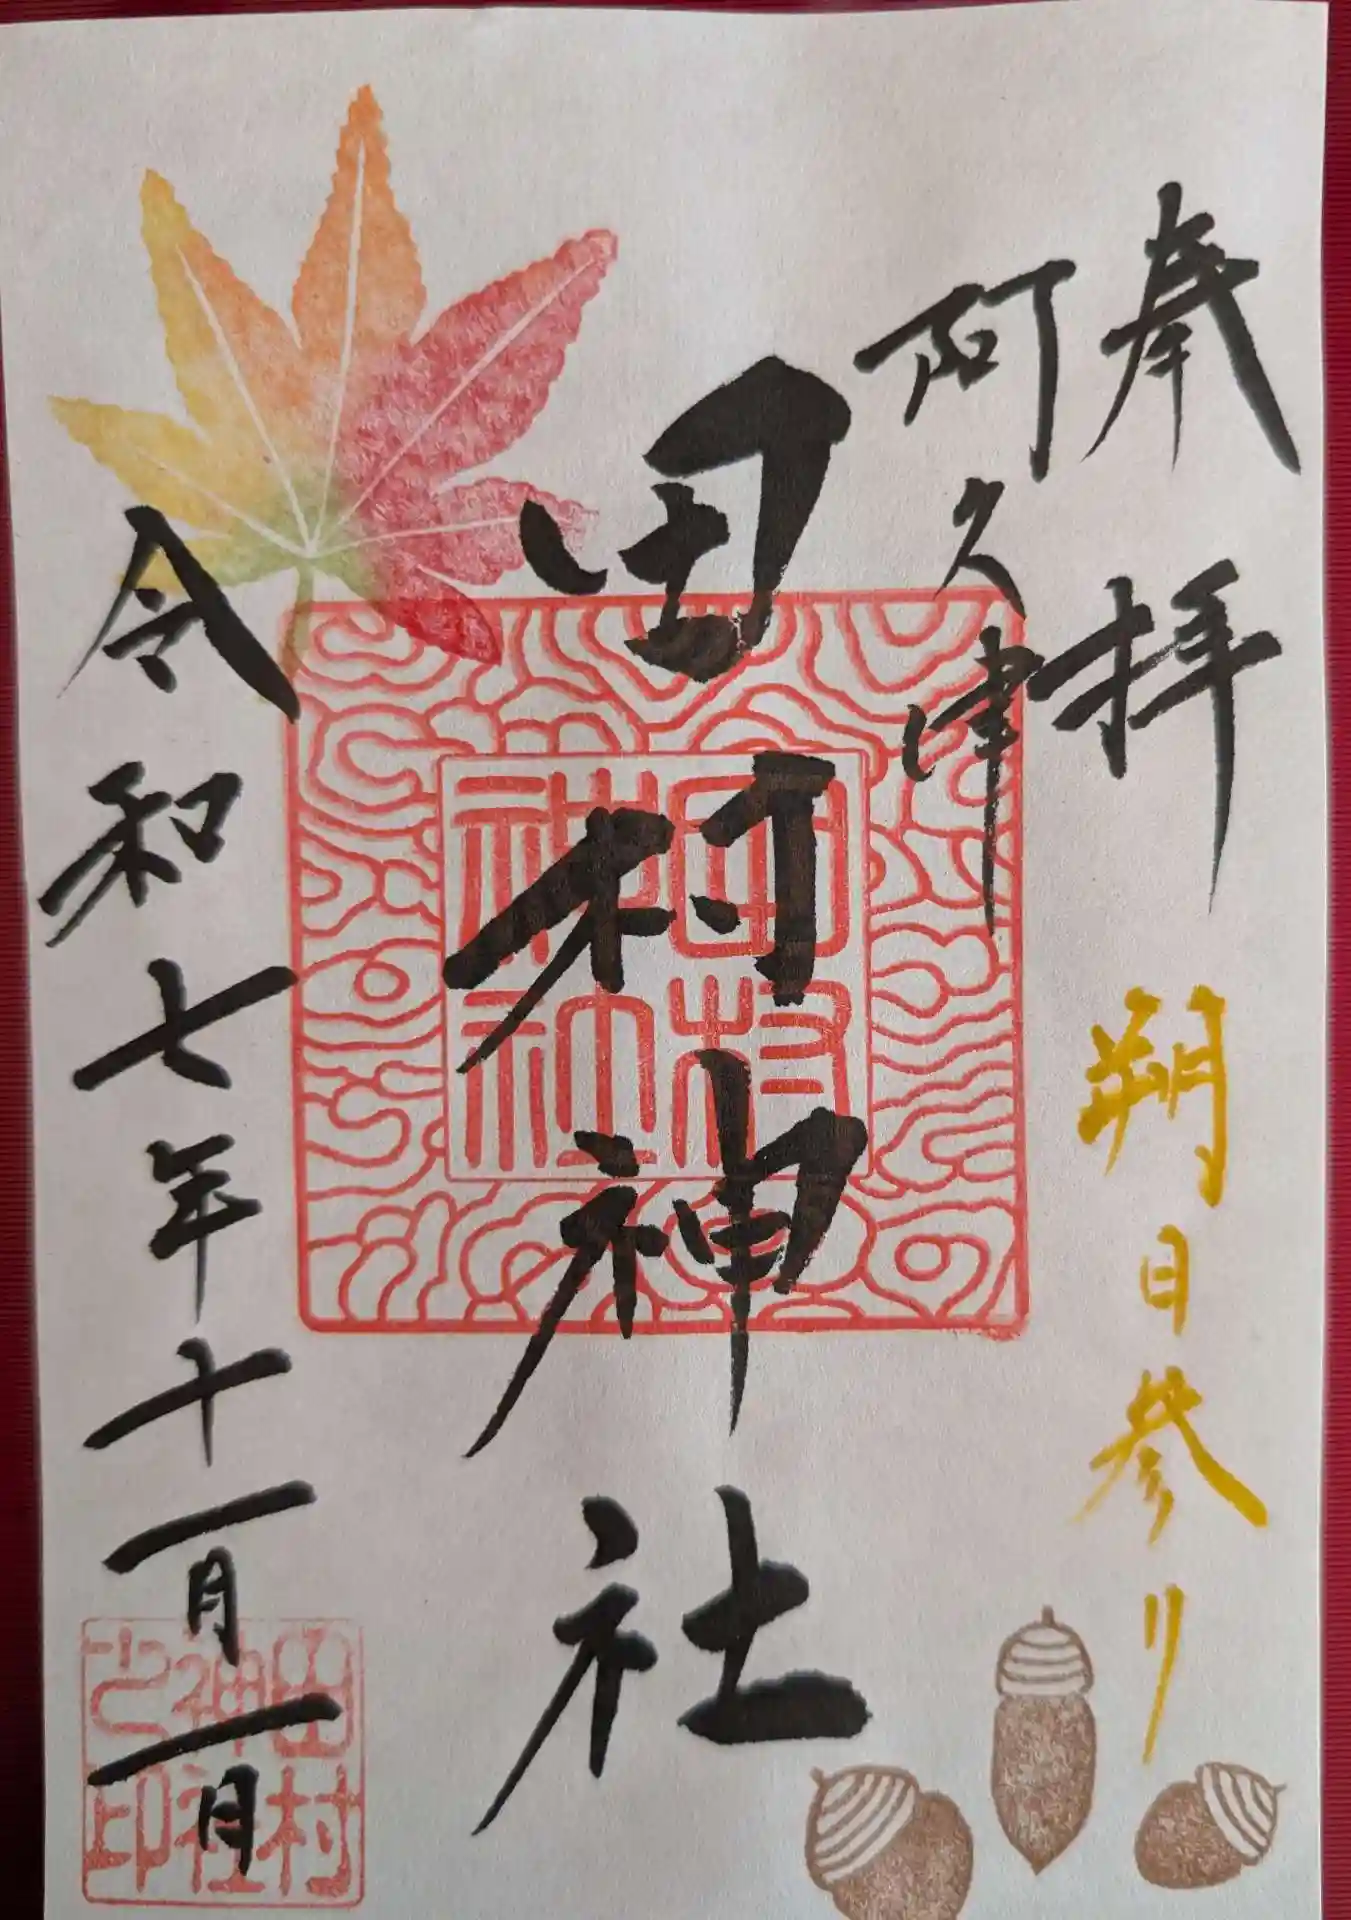 奉拝
朔日参り
阿久津
田村神社
田村
神社
令和七年十一月一日
田村
神社
之印